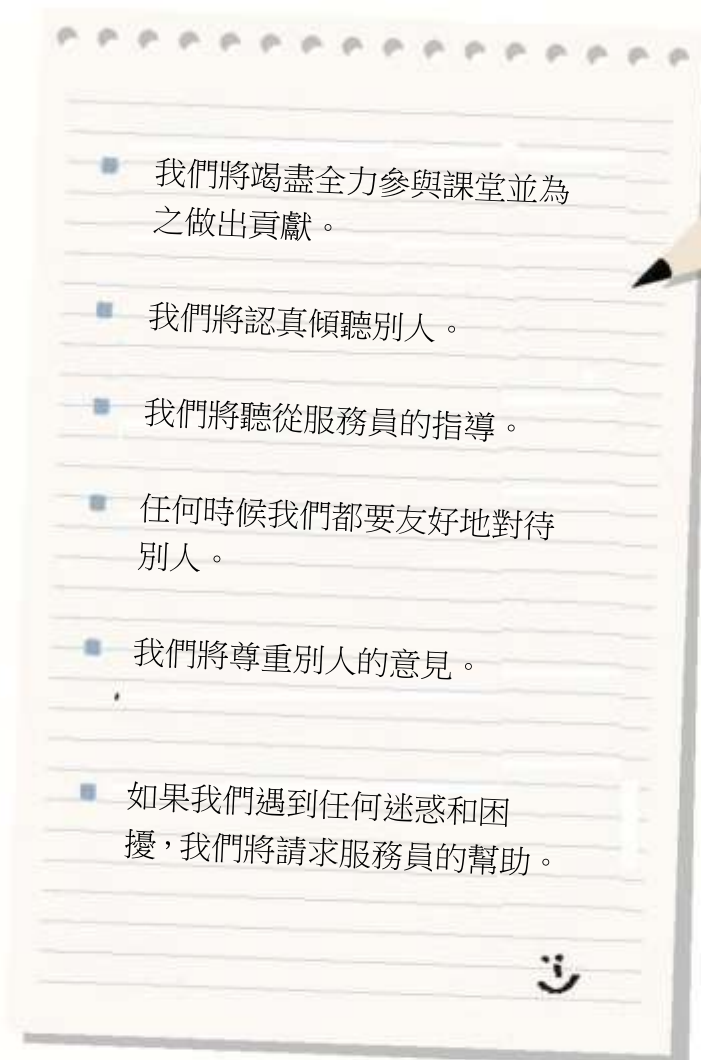 我們將竭盡全力參與課堂並為
之做出貢獻。
我們將認真傾聽別人。
我們將聽從服務員的指導。
任何時候我們都要友好地對待
別人。
我們將尊重別人的意見。
如果我們遇到任何迷惑和困
擾，我們將請求服務員的幫助。